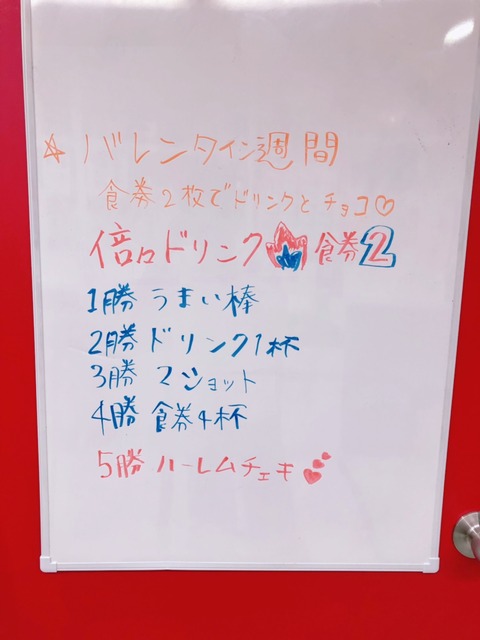 ☆バレンタイン週間
食券2枚でドリンクとチョコ♡
倍々ドリンク 食券2
1勝 うまい棒
2勝 ドリンク1杯
3勝 マショット
4勝 食券4杯
5勝 ハーレムチェキ